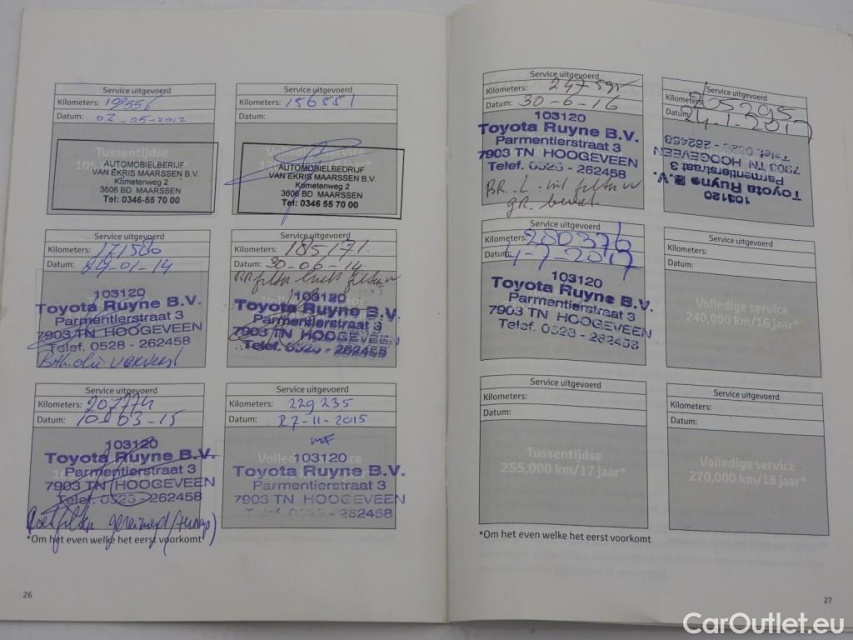 Service uitgevoerd
Kilometers:
Datum: 02-05-2012
Tussentijdse
AUTOMOBIELBEDRIJF
VAN EKRIS MAARSSEN B.V.
Kometenweg 2
3606 BD MAARSSEN
Tel: 0346 55 70 00
Service uitgevoerd
Kilometers: 156851
Datum:
AUTOMOBIELBEDRIJF
VAN EKRIS MAARSSEN B.V.
Kometenweg 2
3606 BD MAARSSEN
Tel: 0346 55 70 00
Service uitgevoerd
Kilometers: 171580
Datum: 24-01-14
103120
Toyota Ruyne B.V.
Parmentierstraat 3
7903 TN HOOGEVEEN
Telef. 0528 - 262458
Service uitgevoerd
Kilometers: 185171
Datum: 30-06-14
103120
Toyota Ruyne B.V.
Parmentierstraat 3
7903 TN HOOGEVEEN
Telef. 0528 - 262458
Service uitgevoerd
Kilometers: 207774
Datum: 10-03-15
103120
Toyota Ruyne B.V.
Parmentierstraat 3
7903 TN HOOGEVEEN
Telef. 0528 - 262458
Service uitgevoerd
Kilometers: 229235
Datum: 27-11-2015
103120
Toyota Ruyne B.V.
Parmentierstraat 3
7903 TN HOOGEVEEN
Telef. 0528 - 262458
*Om het even welke het eerst voorkomt
26
Service uitgevoerd
Kilometers: 247595
Datum: 30-6-16
103120
Toyota Ruyne B.V.
Parmentierstraat 3
7903 TN HOOGEVEEN
Telef. 0528 - 262458
Service uitgevoerd
Kilometers:
Datum: 24-1-2017
103120
Toyota Ruyne B.V.
Parmentierstraat 3
7903 TN HOOGEVEEN
Telef. 0528 - 262458
Service uitgevoerd
Kilometers: 280376
Datum:
103120
Toyota Ruyne B.V.
Parmentierstraat 3
7903 TN HOOGEVEEN
Telef. 0528 - 262458
Service uitgevoerd
Kilometers:
Datum:
Volledige service
240,000 km/16 jaar*
Service uitgevoerd
Kilometers:
Datum:
Tussentijdse
255,000 km/17 jaar*
Service uitgevoerd
Kilometers:
Datum:
Volledige service
270,000 km/18 jaar*
*Om het even welke het eerst voorkomt
27
CarOutlet.eu